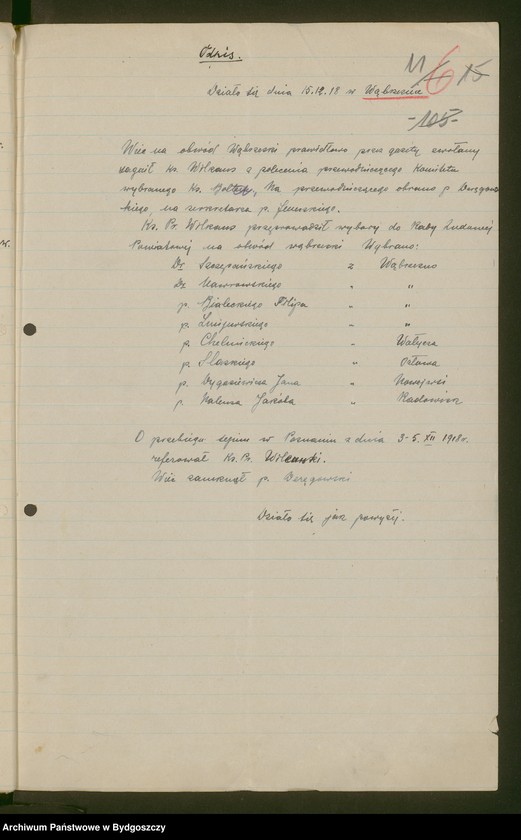 Odpis.
11 6 15
Działo się dnia 15.12.18 w Wąbrzeźnie
-105-
Wiec na obwód Wąbrzeski prawidłowo przez gazety zwołany
zagaił Ks. Wilkans z polecenia przewodniczącego Komitetu
wybranego Ks. Na przewodniczącego obrano p. Deręgow-
skiego, na sekretarza p.
Ks. Pr. Wilkans przeprowadził wybory do Rady Ludowej
Powiatowej na obwód wąbrzeski Wybrano:
Dr. Szczepańskiego z Wąbrzeźna
Dr. Nawrowskiego " "
p. Bialeckiego Filipa " "
p. " "
p. Chełmickiego " Wałycza
p. Slaskiego " Orłowa
p. Jana "
p. Jakóba " Radowisk
O przebiegu sejmu w Poznaniu z dnia 3-5. XII 1918 r.
referował Ks. Pr.
Wiec zamknął p. Deręgowski
Działo się jak powyżej.
Archiwum Państwowe w Bydgoszczy